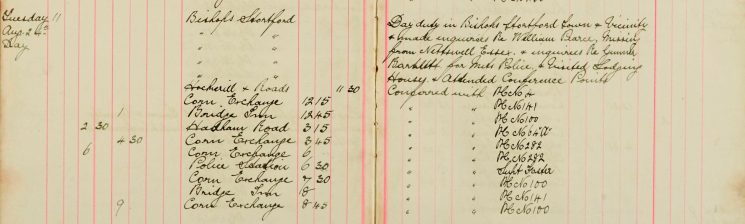 Tuesday 11 Bishops Stortford
Aug 24th " Day duty in Bishops Stortford Town & Vicinity
Day " & made inquiries Re William Barce, Missing
" from Nettswell Essex. & inquiries Re
" Bartlett for Mets Police, & Visited Lodging
" House, & Attended Conference Points
Hockerill & Roads 11 30 Conferred with PC No 4
Corn Exchange 12 15 " " PC No 141
1 Bridge Inn 12 45 " " PC No 100
2 30 Hadham Road 3 15 " " PC No 64 "A"
4 30 Corn Exchange 3 45 " " PC No 282
6 Corn Exchange 6 " " PC No 282
Police Station 6 30 " " Supt Foster
Corn Exchange 7 30 " " PC No 100
Bridge Inn 8 " " PC No 141
9 Corn Exchange 8 45 " " PC No 100